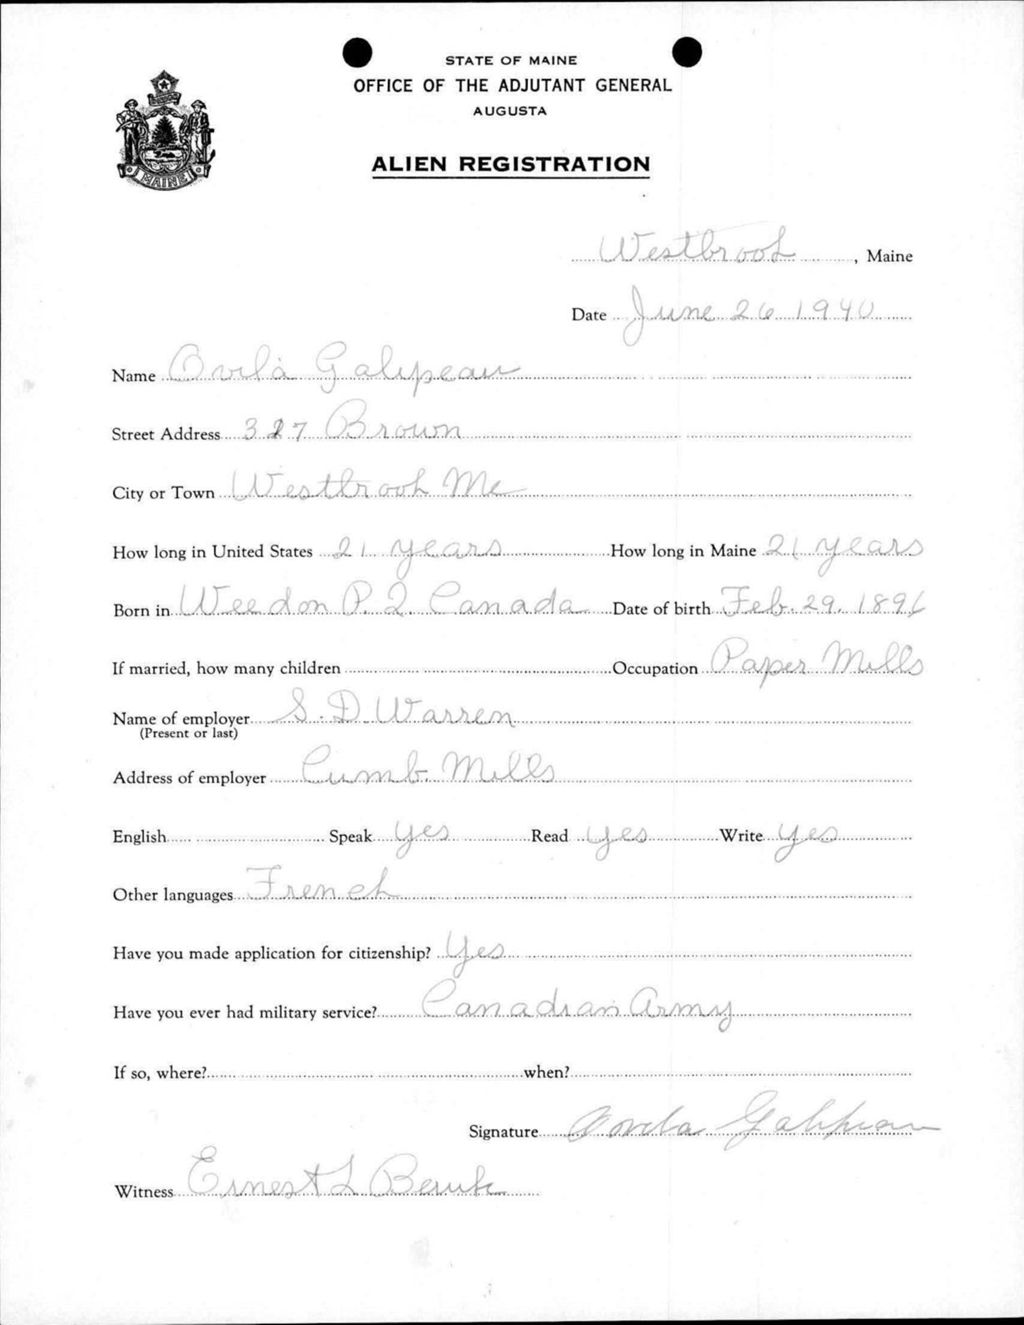 STATE OF MAINE
OFFICE OF THE ADJUTANT GENERAL
AUGUSTA
ALIEN REGISTRATION
MAINE
Westbrook, Maine
Date June 26 1940
Name Ovila Galipeau
Street Address 327 Brown
City or Town Westbrook Me
How long in United States 21 years How long in Maine 21 years
Born in Weedon P. Q. Canada Date of birth Feb. 29, 1896
If married, how many children Occupation Paper Mills
Name of employer S. D. Warren
(Present or last)
Address of employer Cumb. Mills
English Speak yes Read yes Write yes
Other languages French
Have you made application for citizenship? Yes
Have you ever had military service? Canadian Army
If so, where? when?
Signature Ovila Galipeau
Witness Ernest L